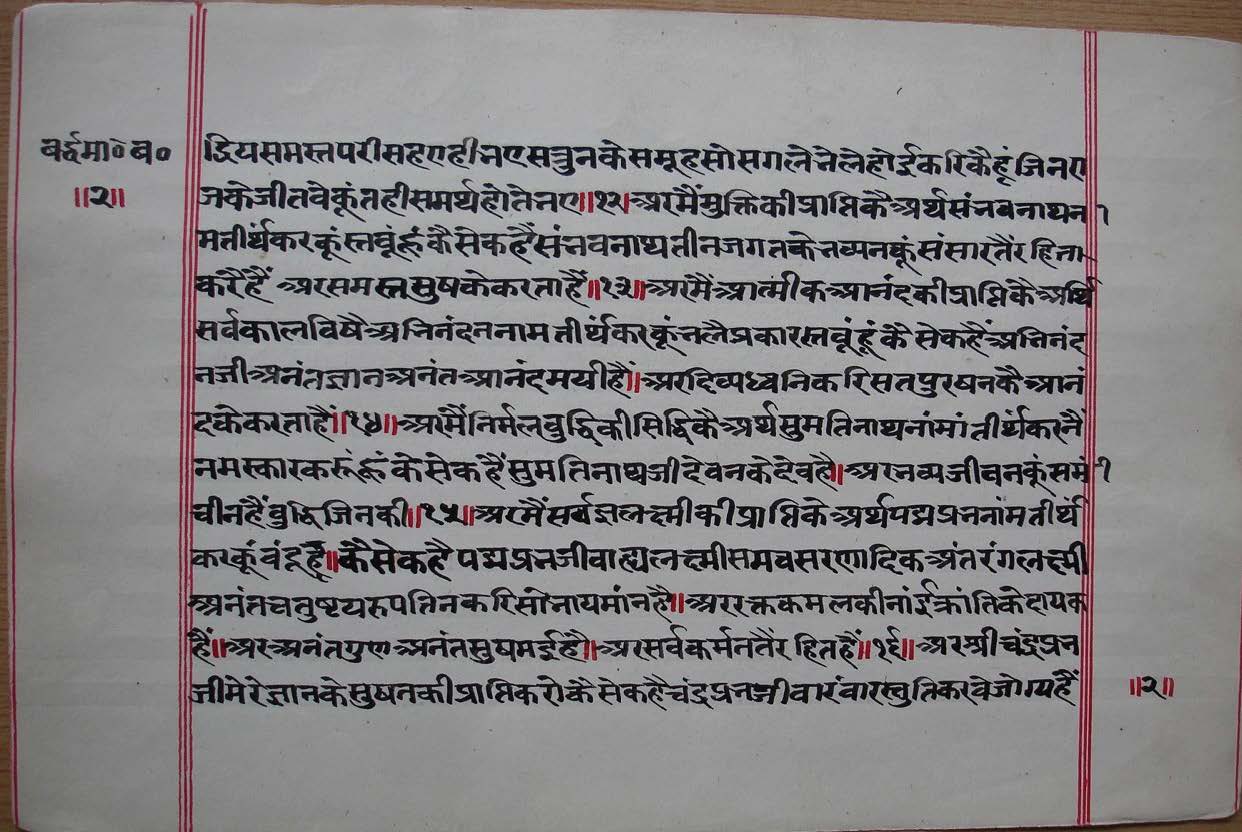 वर्द्धमा० व०
॥२॥
द्रियसमस्तपरीसहएहीभएसत्रुनकेसमूहसोसगलेतेलेहोईकरिकैहूंजिनरा
जकेजीतवेकूंतहीसमर्थहोतेभए॥१२॥अरमैंमुक्तिकीप्राप्तिकैअर्थसंभवनाथन
मतीर्थकरकूंस्तवूंहूंकैसेकहैंसंभवनाथतीनजगतकेभव्यनकूंसंसारतैंरहिता
करैहैं अरसमस्तसुषकेकरताहैं॥१३॥अरमैंआत्मीकआनंदकीप्राप्तिकैअर्थि
सर्वकालविषैअभिनंदननामतीर्थकरकूंभलैप्रकारस्तवूंहूंकैसेकहैंअभिनंद
नजीअनंतज्ञानअनंतआनंदमयीहैं॥अरदिव्यध्वनिकरिसतपुरषनकैआनं
दकेकरताहैं॥१४॥अरमैंनिर्मलबुद्धिकीसिद्धिकैअर्थसुमतिनाथनांमांतीर्थकरनैं
नमस्कारकरूंहूंकेसेकहैंसुमतिनाथजीदेवनकेदेवहै॥अरभव्यजीवनकूंसमं
चीनहैंबुद्धिजिनकी॥१५॥अरमैंसर्वज्ञलक्ष्मीकीप्राप्तिकेअर्थपद्मप्रभनांमतीर्थ
करकूंवंदूहूं॥कैसेकहैपद्मप्रभजीवाह्यलक्ष्मीसमवसरणादिकअंतरंगलक्ष्मी
अनंतचतुष्टयरुपतिनकरिसोभायमांनहै॥अररक्तकमलकीनांईक्रांतिकेदायक
हैं॥अरअनंतगुणअनंतसुषमईहै॥अरसर्वकर्मनतैंरहितहैं॥१६॥अरश्रीचंद्रप्रभ
जीमेरेज्ञानकेसुषनकीप्राप्तिकरोकैसेकहैचंद्रप्रभजीवारंवारस्तुतिकरवेजोग्यहैं
॥२॥